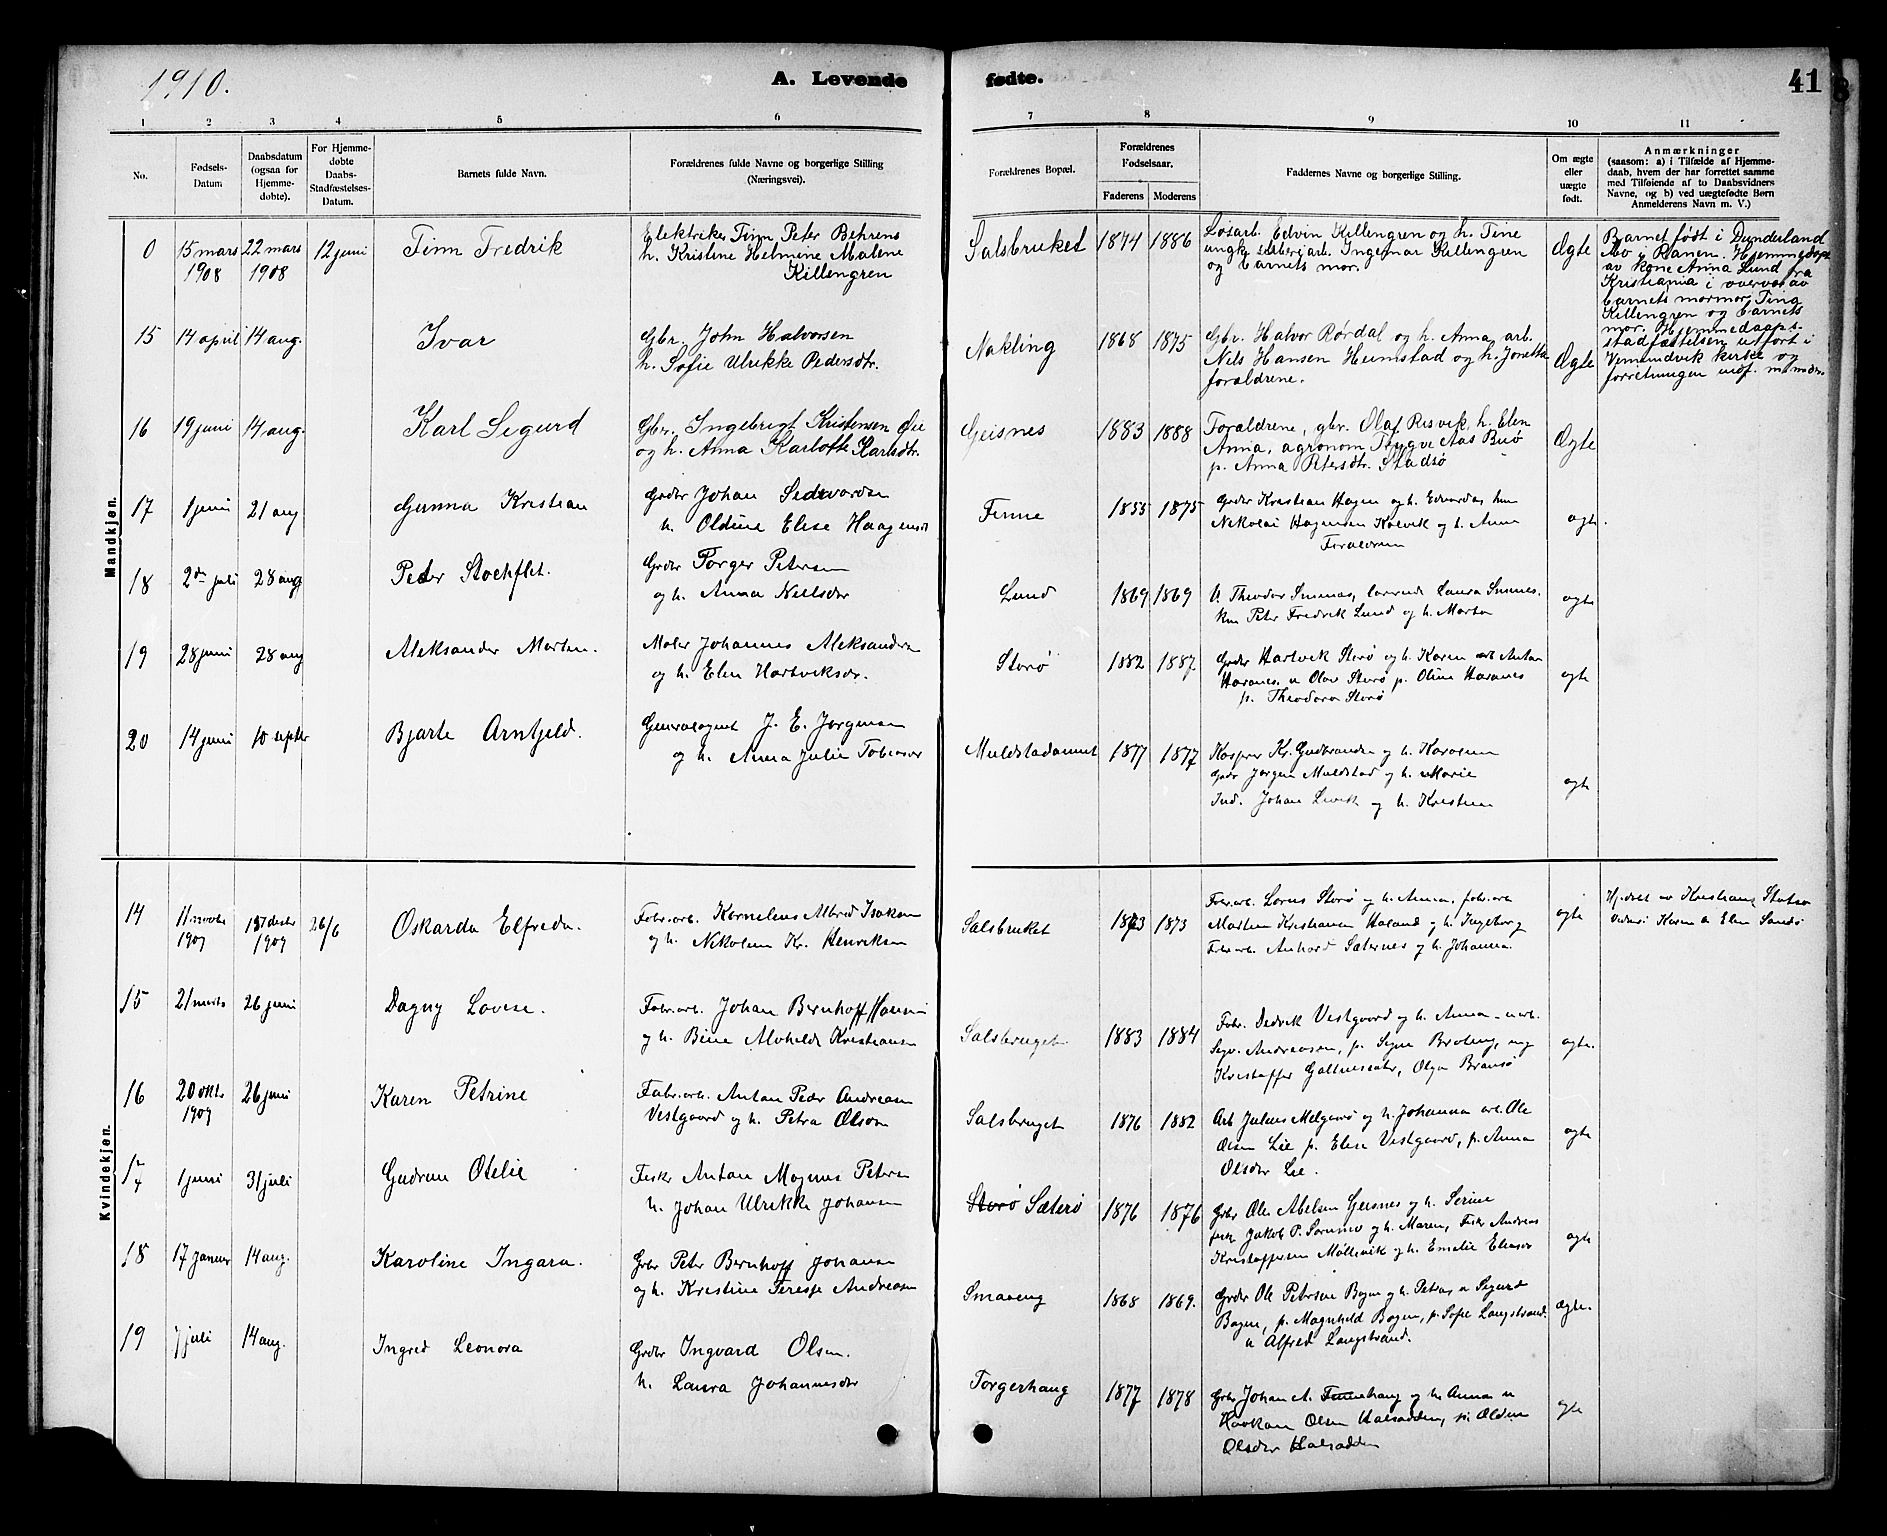 1910.
A. Levende
fødte.
41
1
2
3
4
5
6
7
8
9
10
11
No.
Fødsels-
Datum
Daabsdatum
(ogsaa for
Hjemme-
døbte).
For Hjemme-
døbte
Daabs-
Stadfæstelses-
Datum.
Barnets fulde Navn.
Forældrenes fulde Navne og borgerlige Stilling
(Næringsvei).
Forældrenes Bopæl.
Forældrenes
Fødselsaar.
Faderens
Moderens
Faddernes Navne og borgerlige Stilling.
Om ægte
eller
uægte
født.
Anmærkninger
(saasom: a) i Tilfælde af Hjemme-
daab, hvem der har forrettet samme
med Tilføiende af to Daabsvidners
Navne, og b) ved uægtefødte Børn
Anmelderens Navn m. V.)
Mandkjøn.
0
15 mars
1908
22 mars
1908
12 juni
Finn Fredrik
Elektriker Finn Peter Behrens
h. Kristine Helmene Malene
Killengren
Salsbruket
1874
1886
Løsarb. Edvin Killengren og h. Tine
ungk. Ingemar Killengren
og barnets mor.
Ægte
Barnet født i Dunderland
Mo i Ranen. Hjemmedøpt
av kone Anna Lund fra
Kristiania i overvær av
barnets mormor Tine
Killengren og barnets
mor. Hjemmedaaps-
stadfæstelsen utført i
Vemundvik kirke og
forretningen
15
14 april
14 aug.
Ivar
Gbr. John Halvorsen
h. Sofie Ulrikke Pedersdtr.
Nakling
1868
1875
Gbr. Halvor Rørdal og h. Anna, arb.
Nels Hansen Heimstad og h. Jonetta
foraldrene.
Ægte
16
19 juni
14 aug.
Karl Sigurd
Gbr. Ingebrigt Kristensen Øie
og h. Anna Karlotte Karlsdtr.
Geisnes
1883
1888
Foraldrene, gbr. Olaf Risvik, h. Elen
Anna, agronom Trygve Aas Buø
p. Anna Petersdtr. Stadsø
Ægte
17
1 juni
21 aug
Gunnar Kristian
Grdbr Johan Sedevardsn
h. Oldine Elise Haagensdr
Finne
1855
1875
Grdbr Kristian Hagen og h. Edvarda,
Nikolai Hagensen Kolvik og h. Anna
Foraldren
ægte.
18
2den juli
28 aug
Peder Stochflet.
Grdbr Torger Petersen
og h. Anna Nielsdr
Lund
1869
1869
Theodor Sunnas, Laura Sunnes.
Peter Fredrik Lund og h. Marta
ægte
19
28 juni
28 aug
Aleksander Morten.
Maler Johannes Aleksandersn
og h. Elen Hartviksdr.
Storø
1882
1887
Grdbr Hartvik Storø og h. Karen arb Anton
Haranes. u Olav Storø p. Oline Haranes
p. Theodora Storø
ægte
20
14 juni
10 septbr
Bjarte Arntjeld.
Generalagent J. E. Jørgensen
og h. Anna Julie Tobiasdr
Muldstadaunet
1877
1877
Kasper Kr. Gudbrandsn og h. Karoline
Grdr Jørgen Muldstad og h. Marie
Johan Livik og h. Kristine
ægte
Kvindekjøn.
14
11 novbr
1909
13 desbr
1909
26/6
Oskarda Elfreda.
Fabr.arb. Kornelius Albred Isaksen
og h. Nikoline Kr. Henriksen
Salsbruket
1873
1873
Fabr.arb. Lorns Storø og h. Anna, fabr.arb
Martin Kristiansen Haland og h. Ingeborg
Fabr.arb. Anhard Sæternes og h. Johanna.
ægte
Hj.døbt av Kristiane Statsø
Karen & Elen Sandø
15
21 marts
26 juni
Dagny Lovise.
Fabr.arb. Johan Bernhoff Hansen
og h. Bine Alvhilde Kristiansen
Salsbruget
1883
1884
Fabr. Dedrik Vestgaard og h. Anna
Andreassen, p. Signe Broten,
Kristoffer Galtnessæter, Olga Bransø
ægte.
16
20 oktbr
1909
26 juni
Karen Petrine
Fabr.arb. Anton Peder Andreasen
Vestgaard og h. Petra Olsen
Salsbruget
1876
1882
Arb Julius Melgaard og h. Johanna arb. Ole
Olsen Lie p. Elise Vestgaard, p. Anna
Olsdtr Lie.
ægte
17
1 juni
31 juli
Gudrun Otelie
Fisker Anton Magnus Petersen
h. Johan Ulrikke Johansen
Storø Sæterø
1876
1876
Grbr Ole Abelsen Geisnes og h. Serine
Jakob P. Sørumo og h. Maren, Fisker Andreas
Kristoffersen Møllevik og h. Emelie Eliasdr
ægte
18
17 januar
14 aug.
Karoline Ingara.
Grbr Peter Bernhoff Johansen
og h. Kristine Teresse Andreasen
Smaaeng
1868
1869.
Grdbr Ole Petersen Bogen og h. Petra, u Sigurd
Bogen, p. Magnhild Bogen, p. Sofie Langstrand.
u Alfred Langstrand.
ægte.
19
7 juli
14 aug.
Ingred Leonora
Grdbr Ingvard Olsen.
h. Laura Johannesdr
Torgerhaug
1877
1878
Grbr Johan A. Finnehaug og h. Anna u
Haakon Olsen Halsadden, p. Oldine
Olsdtr Halsadden
ægte